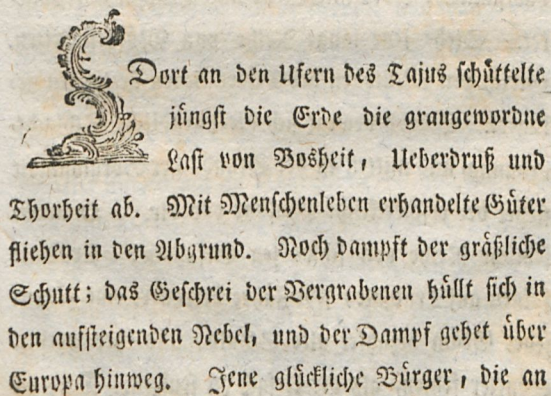 Dort an den Ufern des Tajus schüttelte
jüngst die Erde die graugewordne
Last von Bosheit, Ueberdruß und
Thorheit ab. Mit Menschenleben erhandelte Güter
fliehen in den Abgrund. Noch dampft der gräßliche
Schutt; das Geschrei der Vergrabenen hüllt sich in
den aufsteigenden Nebel, und der Dampf gehet über
Europa hinweg. Jene glückliche Bürger, die an